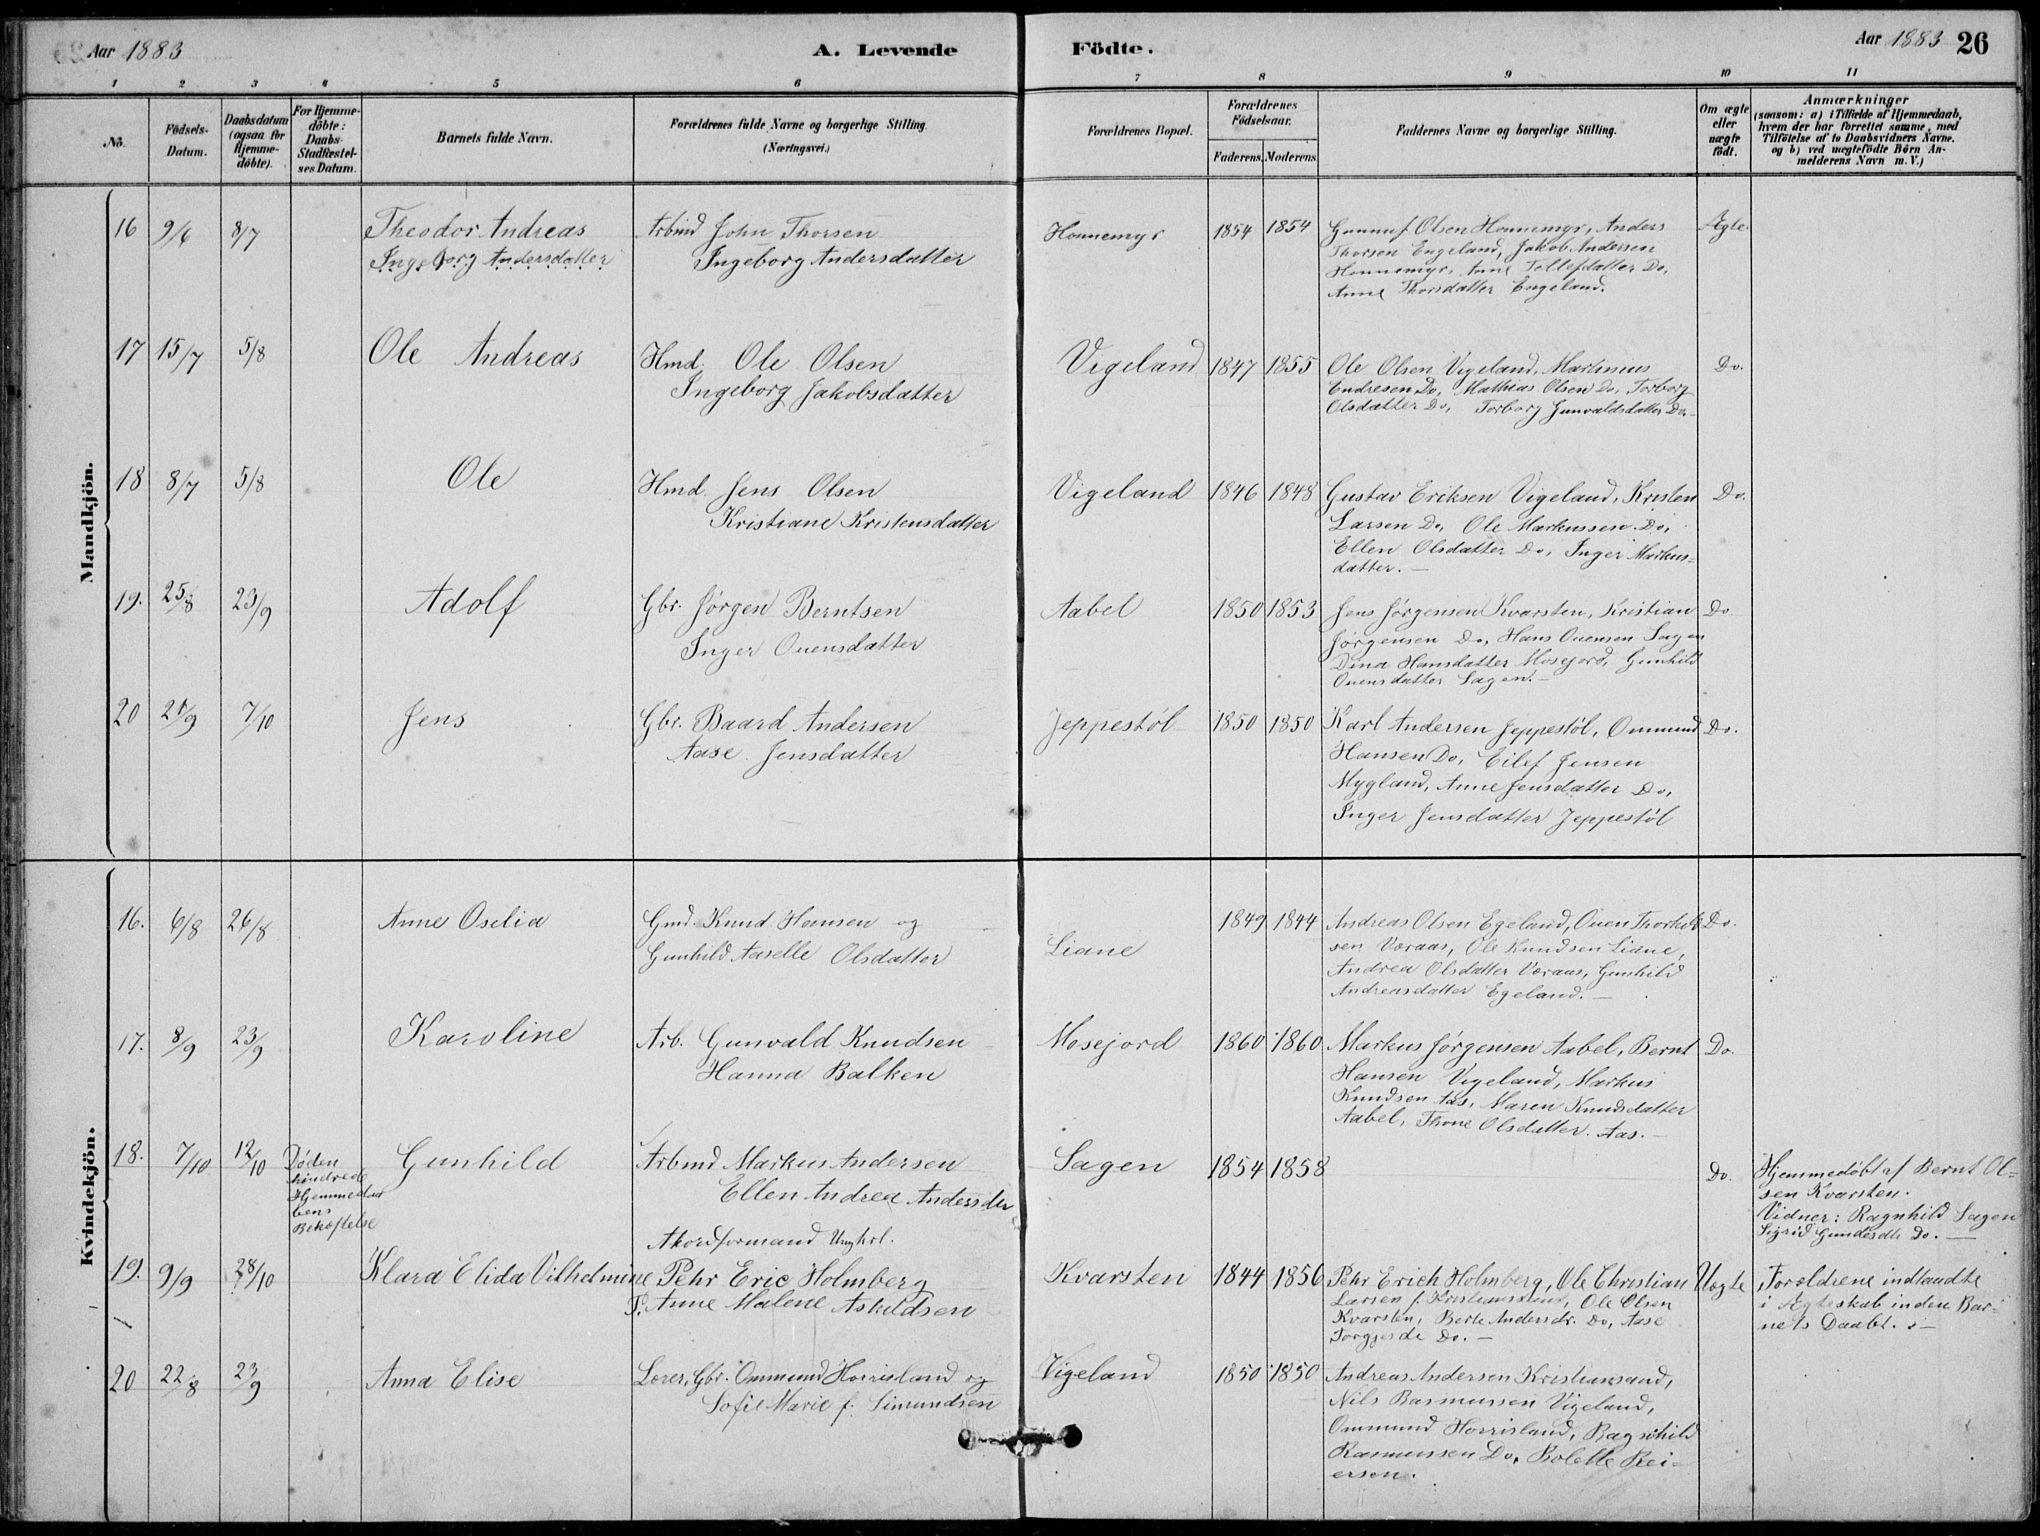 Aar 1883
A. Levende
Födte.
Aar 1883
26
1 2 3 4 5 6 7 8 9 10 11
No.
Födsels-Datum.
Daabsdatum (ogsaa for Hjemme-döbte).
For Hjemme-döbte: Daabs-Stadfæstel-ses Datum.
Barnets fulde Navn.
Forældrenes fulde Navne og borgerlige Stilling.
(Næringsvei.)
Forældrenes Bopæl.
Forældrenes Födselsaar.
Faderens. Moderens.
Faddernes Navne og borgerlige Stilling.
Om ægte eller uægte födt.
Anmærkninger
(saasom: a) i Tilfælde af Hjemmedaab,
hvem der har forrettet samme, med
Tilföielse af to Daabsvidners Navne.
og b) ved uægtefödte Börn An-
melderens Navn m. V.)
Mandkjön.
16 9/6 8/7 Theodor Andreas Arbmd John Thorsen Honnemyr 1854 1854 Gunnuf Olsen Honnemyr, Anders Ægte
Ingeborg Andersdatter Ingeborg Andersdatter Thorsen Engeland, Jakob Andersen
Honnemyr, Anne Tellefdatter Do,
Anne Thorsdatter Engeland.
17 15/7 5/8 Ole Andreas Hmd. Ole Olsen Vigeland 1847 1855 Ole Olsen Vigeland, Martinius Do.
Ingeborg Jakobsdatter Endresen Do, Mathias Olsen Do, Torborg
Olsdatter Do, Torborg Gunvaldsdatter Do.
18 8/7 5/8 Ole Hmd. Jens Olsen Vigeland 1846 1848 Gustav Eriksen Vigeland, Kristen Do.
Kristiane Kristensdatter Larsen Do, Ole Markussen Do,
Ellen Olsdatter Do, Inger Markus-
datter.
19. 25/8 23/9 Adolf Gbr. Jørgen Berntsen Aabel 1850 1853 Jens Jørgensen Kvarsten, Kristian Do
Inger Ouensdatter Jørgensen Do, Hans Ouensen Sagen
Dina Hansdatter Mosejord, Gunhild
Ouensdatter Sagen.
20 21/9 7/10 Jens Gbr. Baard Andersen Jeppestøl 1850 1850 Karl Andersen Jeppestøl, Ommund Do.
Aase Jensdatter Hansen Do, Eilef Jensen
Mygland, Anne Jensdatter Do,
Inger Jensdatter Jeppestøl
Kvindekjön.
16. 6/8 26/8 Anne Oselia Gmd Knud Hansen og Liane 1849 1844 Andreas Olsen Egeland, Ouen Thorkild Do.
Gunhild Aaselle Olsdatter sen Væraas, Ole Knudsen Liane,
Andrea Olsdatter Væraas, Gunhild
Andreasdatter Egeland.
17. 8/9 23/9 Karoline Arb. Gunvald Knudsen Mosejord 1860 1860 Markus Jørgensen Aabel, Bernt Do.
Hanna Balken Hansen Vigeland, Markus
Knudsen Aas, Maren Knudsdatter
Aabel, Thone Olsdatter Aas.
18. 7/10 12/10 Døden hindrede Hjemmedaabens Bekræftelse Gunhild Arbmd Markus Andersen Sagen 1854 1858 Do. Hjemmedøbt af Bernt Ol-
Ellen Andrea Andersdtr sen Kvarsten.
Vidner: Ragnhild Sagen
Sigrid Gundesdt Do.
Akordformand Ungkrl.
19. 9/9 28/10 Klara Elida Vilhelmine Pehr Eric Holmberg Kvarsten 1844 1856 Pehr Erich Holmberg, Ole Christian Uægte Forældrene indtraadte
P. Anne Malene Askildsen Larsen f. Kristianssand, Ole Olsen i Ægteskab inden Bar-
Kvarsten, Berte Andersdr. Do, Aase nets Daab.
Torgjersd Do.
20 22/8 23/9 Anna Elise Lærer, Gbr. Ommund Horrisland og Vigeland 1850 1850 Andreas Andersen Kristianssand,
Sofie Marie f. Simundsen Nils Rasmussen Vigeland,
Ommund Horrisland, Ragnhild
Rasmussen Do, Bolette Rei-
ersen.